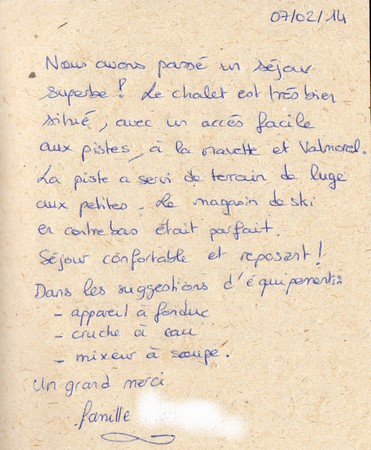 07/02/14
Nous avons passé un séjour
superbe ! Le chalet est très bien
situé, avec un accès facile
aux pistes, à la navette et Valmorel.
La piste a servi de terrain de luge
aux petites. Le magasin de ski
en contrebas était parfait.
Séjour confortable et reposant !
Dans les suggestions d'équipements
- appareil à fondue
- cruche à eau
- mixeur à soupe.
Un grand merci
famille